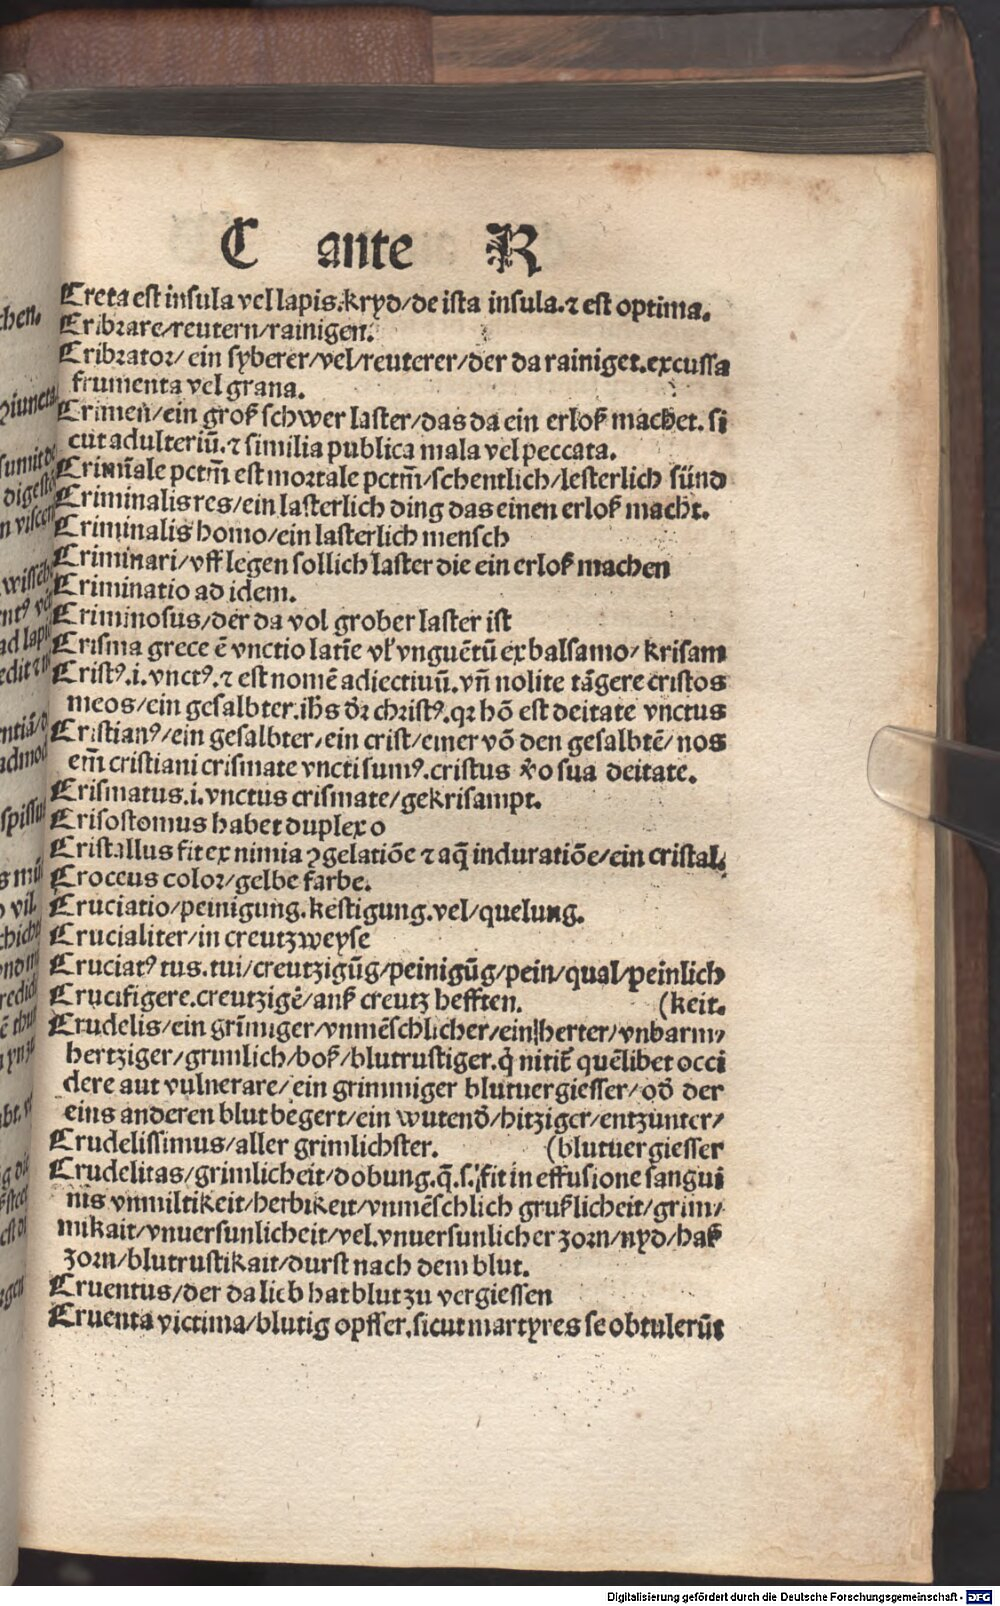 C ante R
Creta est insula vel lapis.kryd/de ista insula.⁊ est optima.
Cribrare/reutern/rainigen.
Cribrator/ ein syberer/vel/reuterer/der da rainiget.excussa
frumenta vel grana.
Crimen/ein groß schwer laster/das da ein erloß machet. si
cut adulteriū.⁊ similia publica mala vel peccata.
Crimīale pctm̄ est mortale pctm̄/schentlich/lesterlich sünd
Criminalis res/ein lasterlich ding das einen erloß macht.
Criminalis homo/ein lasterlich mensch
Criminari/vff legen sollich laster die ein erloß machen
Criminatio ad idem.
Criminosus/der da vol grober laster ist
Crisma grece ē vnctio latīe vl' vnguētū ex balsamo/ krisam
Cristꝰ.i.vnctꝰ.⁊ est nomē adiectiuū.vn̄ nolite tāgere cristos
meos/ein gesalbter.ihs dr̄ christꝰ.qꝛ hō est deitate vnctus
Cristianꝰ/ein gesalbter/ein crist/einer vō den gesalbtē/nos
em̄ cristiani crismate vncti sumꝰ.cristus ẜo sua deitate.
Crismatus.i.vnctus crismate/gekrisampt.
Crisostomus habet duplex o
Cristallus fit ex nimia ꝯgelatiōe ⁊ aq̄ induratiōe/ein cristal.
Croceus color/gelbe farbe.
Cruciatio/peinigung.kestigung.vel/quelung.
Crucialiter/in creutzweyse
Cruciatꝰ tus.tui/creutzigūg/peinigūg/pein/qual/peinlich
Crucifigere.creutzigē/anß creutz hefften. (keit.
Crudelis/ein grīmiger/vnmēschlicher/ein herter/vnbarm/
hertziger/grimlich/boß/blutrustiger.q̇ nitit̄ quēlibet occi
dere aut vulnerare/ein grimmiger blutuergiesser/od̄ der
eins anderen blut begert/ein wutend̄/hitziger/entzunter/
Crudelissimus/aller grimlichster. (blutuergiesser
Crudelitas/grimlicheit/dobung.q̄.s.fit in effusione sangui
nis vnmiltikeit/herbikeit/vnmēschlich grußlicheit/grim/
mikait/vnuersunlicheit/vel.vnuersunlicher zorn/nyd/haß
zorn/blutrustikait/durst nach dem blut.
Cruentus/der da lieb hat blut zu vergiessen
Cruenta victima/blutig opffer.sicut martyres se obtulerūt
Digitalisierung gefördert durch die Deutsche Forschungsgemeinschaft - DFG